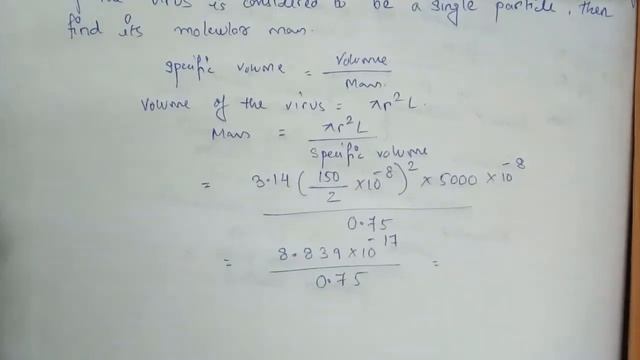 the virus is considered to be a single particle, then
find its molecular mass.
Specific volume = Volume / Mass.
Volume of the virus = πr²L.
Mass = πr²L / Specific volume
= 3.14 (150/2 × 10⁻⁸)² × 5000 × 10⁻⁸ / 0.75
= 8.839 × 10⁻¹⁷ / 0.75 =